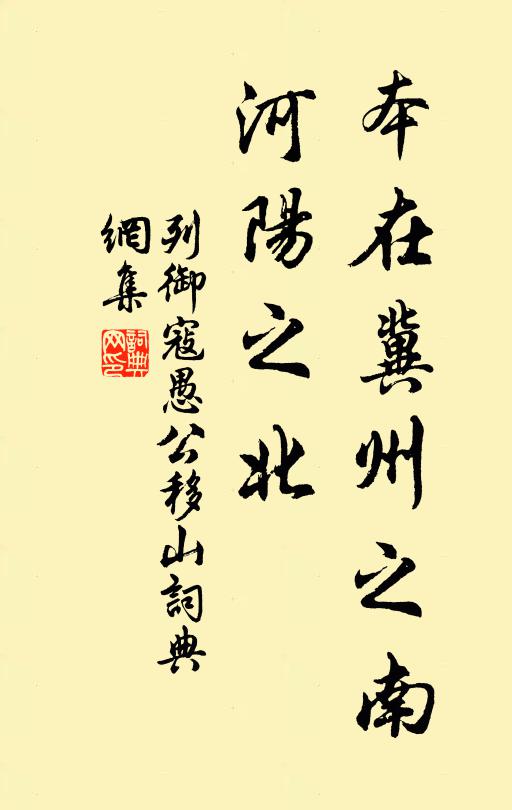 本在冀州之南
河陽之北
列御寇愚公移山詞典
網集
詞典
网印